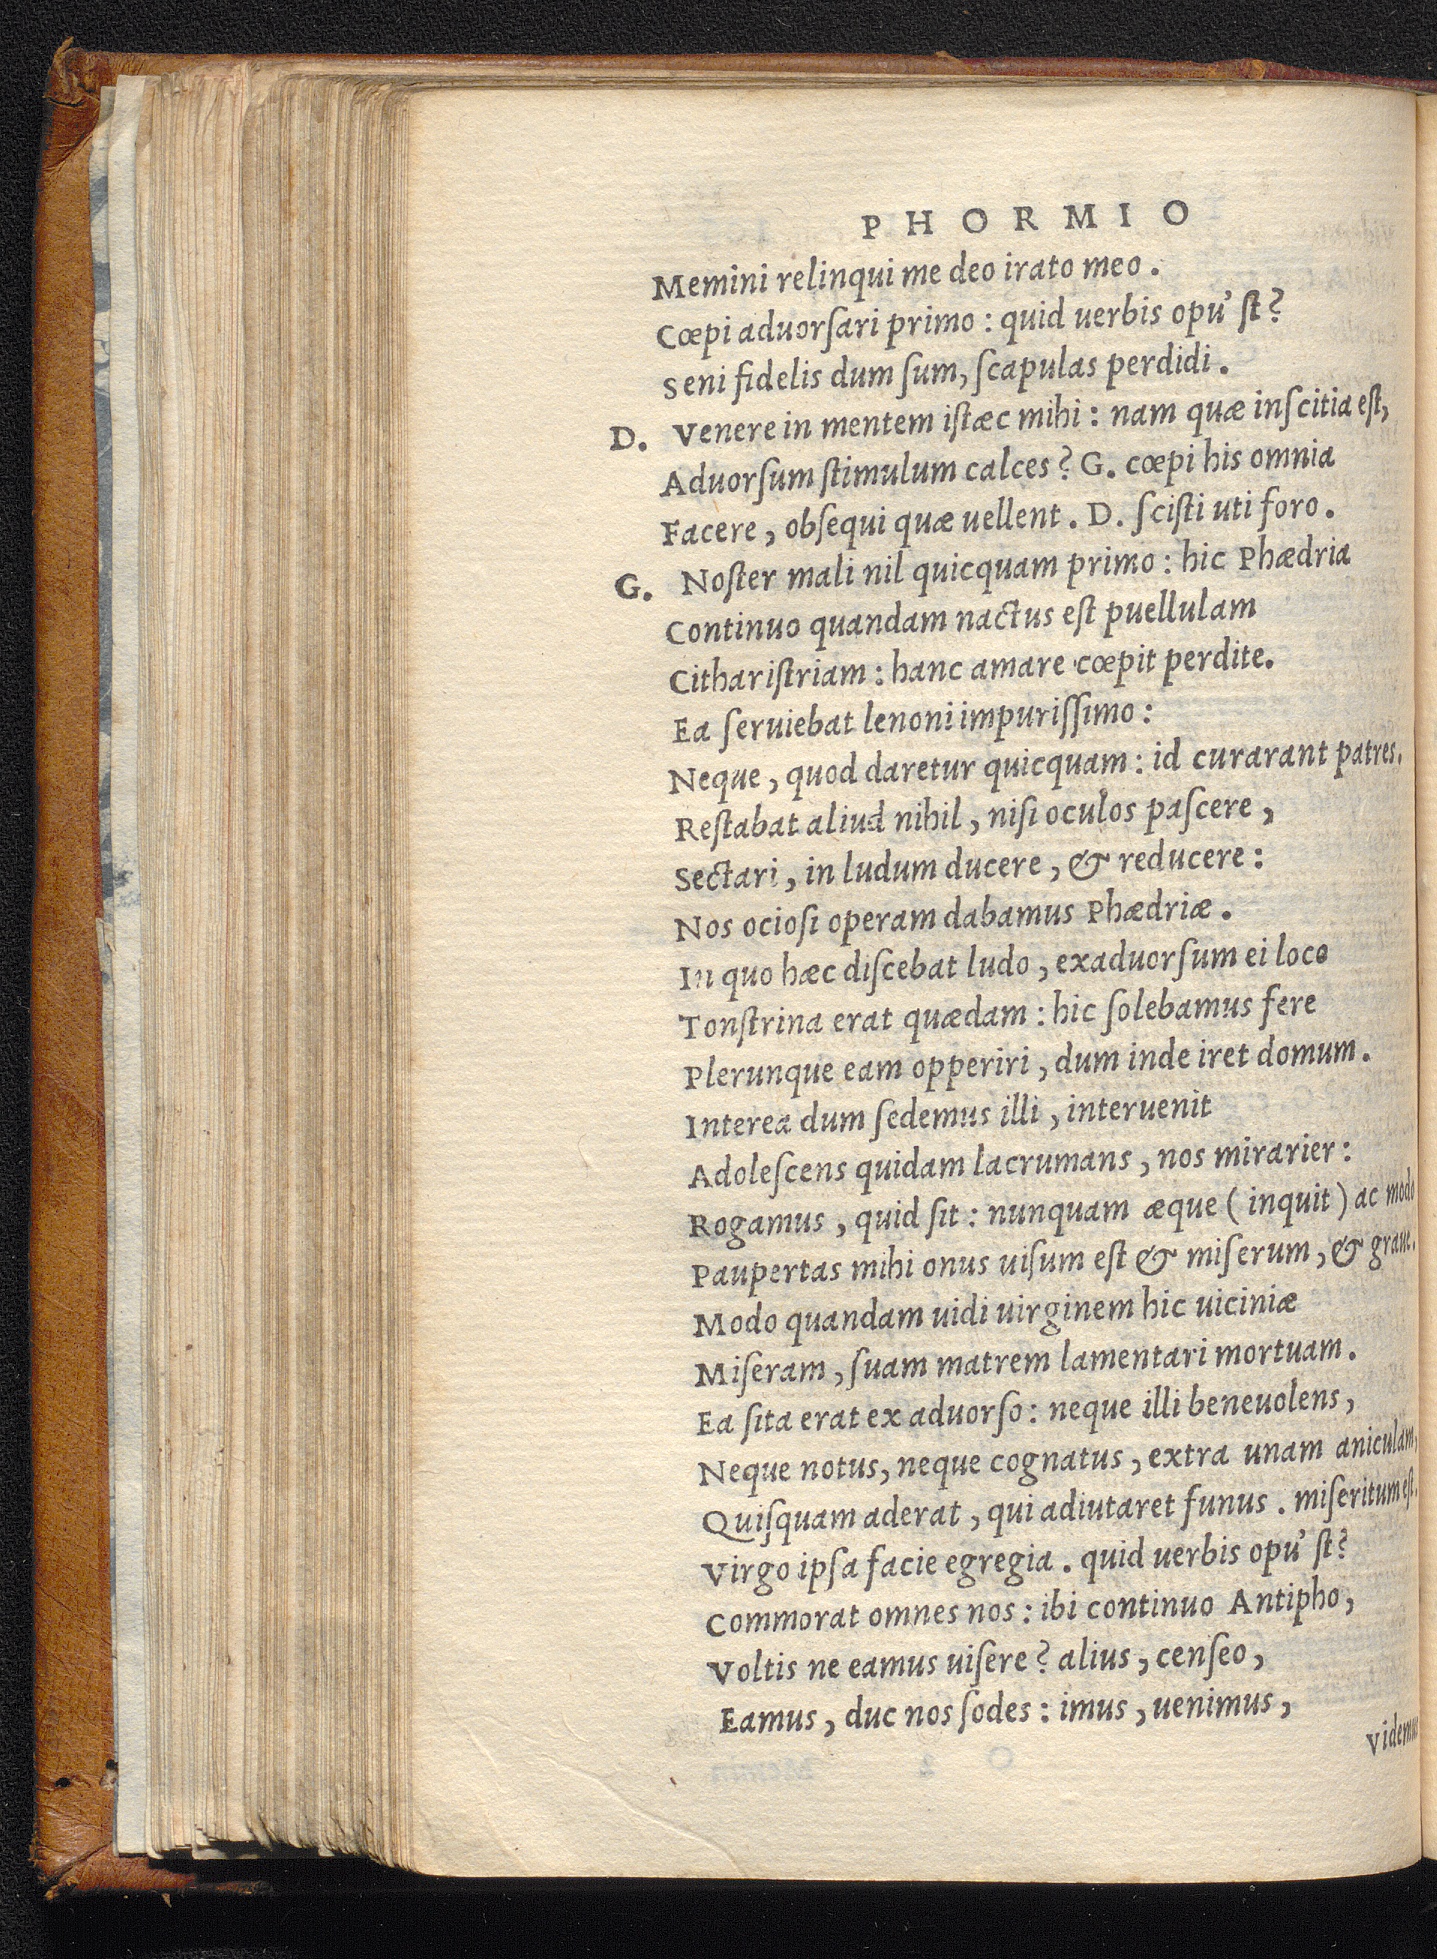 PHORMIO
Memini relinqui me deo irato meo.
Cœpi aduorſari primo: quid uerbis opu' ſt?
Seni fidelis dum ſum, ſcapulas perdidi.
D. Venere in mentem iſtæc mihi: nam quæ inſcitia eſt,
Aduorſum ſtimulum calces? G. cœpi his omnia
Facere, obſequi quæ uellent. D. ſciſti uti foro.
G. Noſter mali nil quicquam primo: hic Phædria
Continuo quandam nactus eſt puellulam
Cithariſtriam: hanc amare cœpit perdite.
Ea ſeruiebat lenoni impuriſſimo:
Neque, quod daretur quicquam: id curarant patres.
Reſtabat aliud nihil, niſi oculos paſcere,
Sectari, in ludum ducere, & reducere:
Nos ocioſi operam dabamus Phædriæ.
In quo hæc diſcebat ludo, exaduorſum ei loco
Tonſtrina erat quædam: hic ſolebamus fere
Plerunque eam opperiri, dum inde iret domum.
Interea dum ſedemus illi, interuenit
Adoleſcens quidam lacrumans, nos mirarier:
Rogamus, quid ſit: nunquam æque (inquit) ac modo
Paupertas mihi onus uiſum eſt & miſerum, & graue.
Modo quandam uidi uirginem hic uiciniæ
Miſeram, ſuam matrem lamentari mortuam.
Ea ſita erat ex aduorſo: neque illi beneuolens,
Neque notus, neque cognatus, extra unam aniculam,
Quiſquam aderat, qui adiutaret funus. miſeritum eſt.
Virgo ipſa facie egregia. quid uerbis opu' ſt?
Commorat omnes nos: ibi continuo Antipho,
Voltis ne eamus uiſere? alius, cenſeo,
Eamus, duc nos ſodes: imus, uenimus,
Videmus